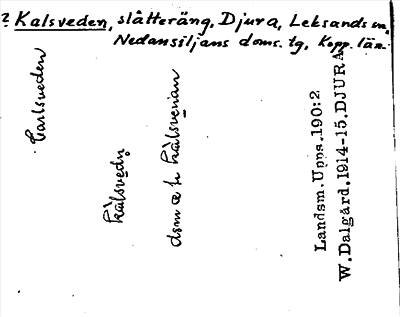 ? Kalsveden, slåtteräng, Djura, Leksands sn,
Nedansiljans doms. tg, Kopp. län.
Carlsveden
kàlsvedn̥
dsm æ h kàlsvenan
Landsm. Upps. 190:2
W. Dalgård. 1914-15. DJURA